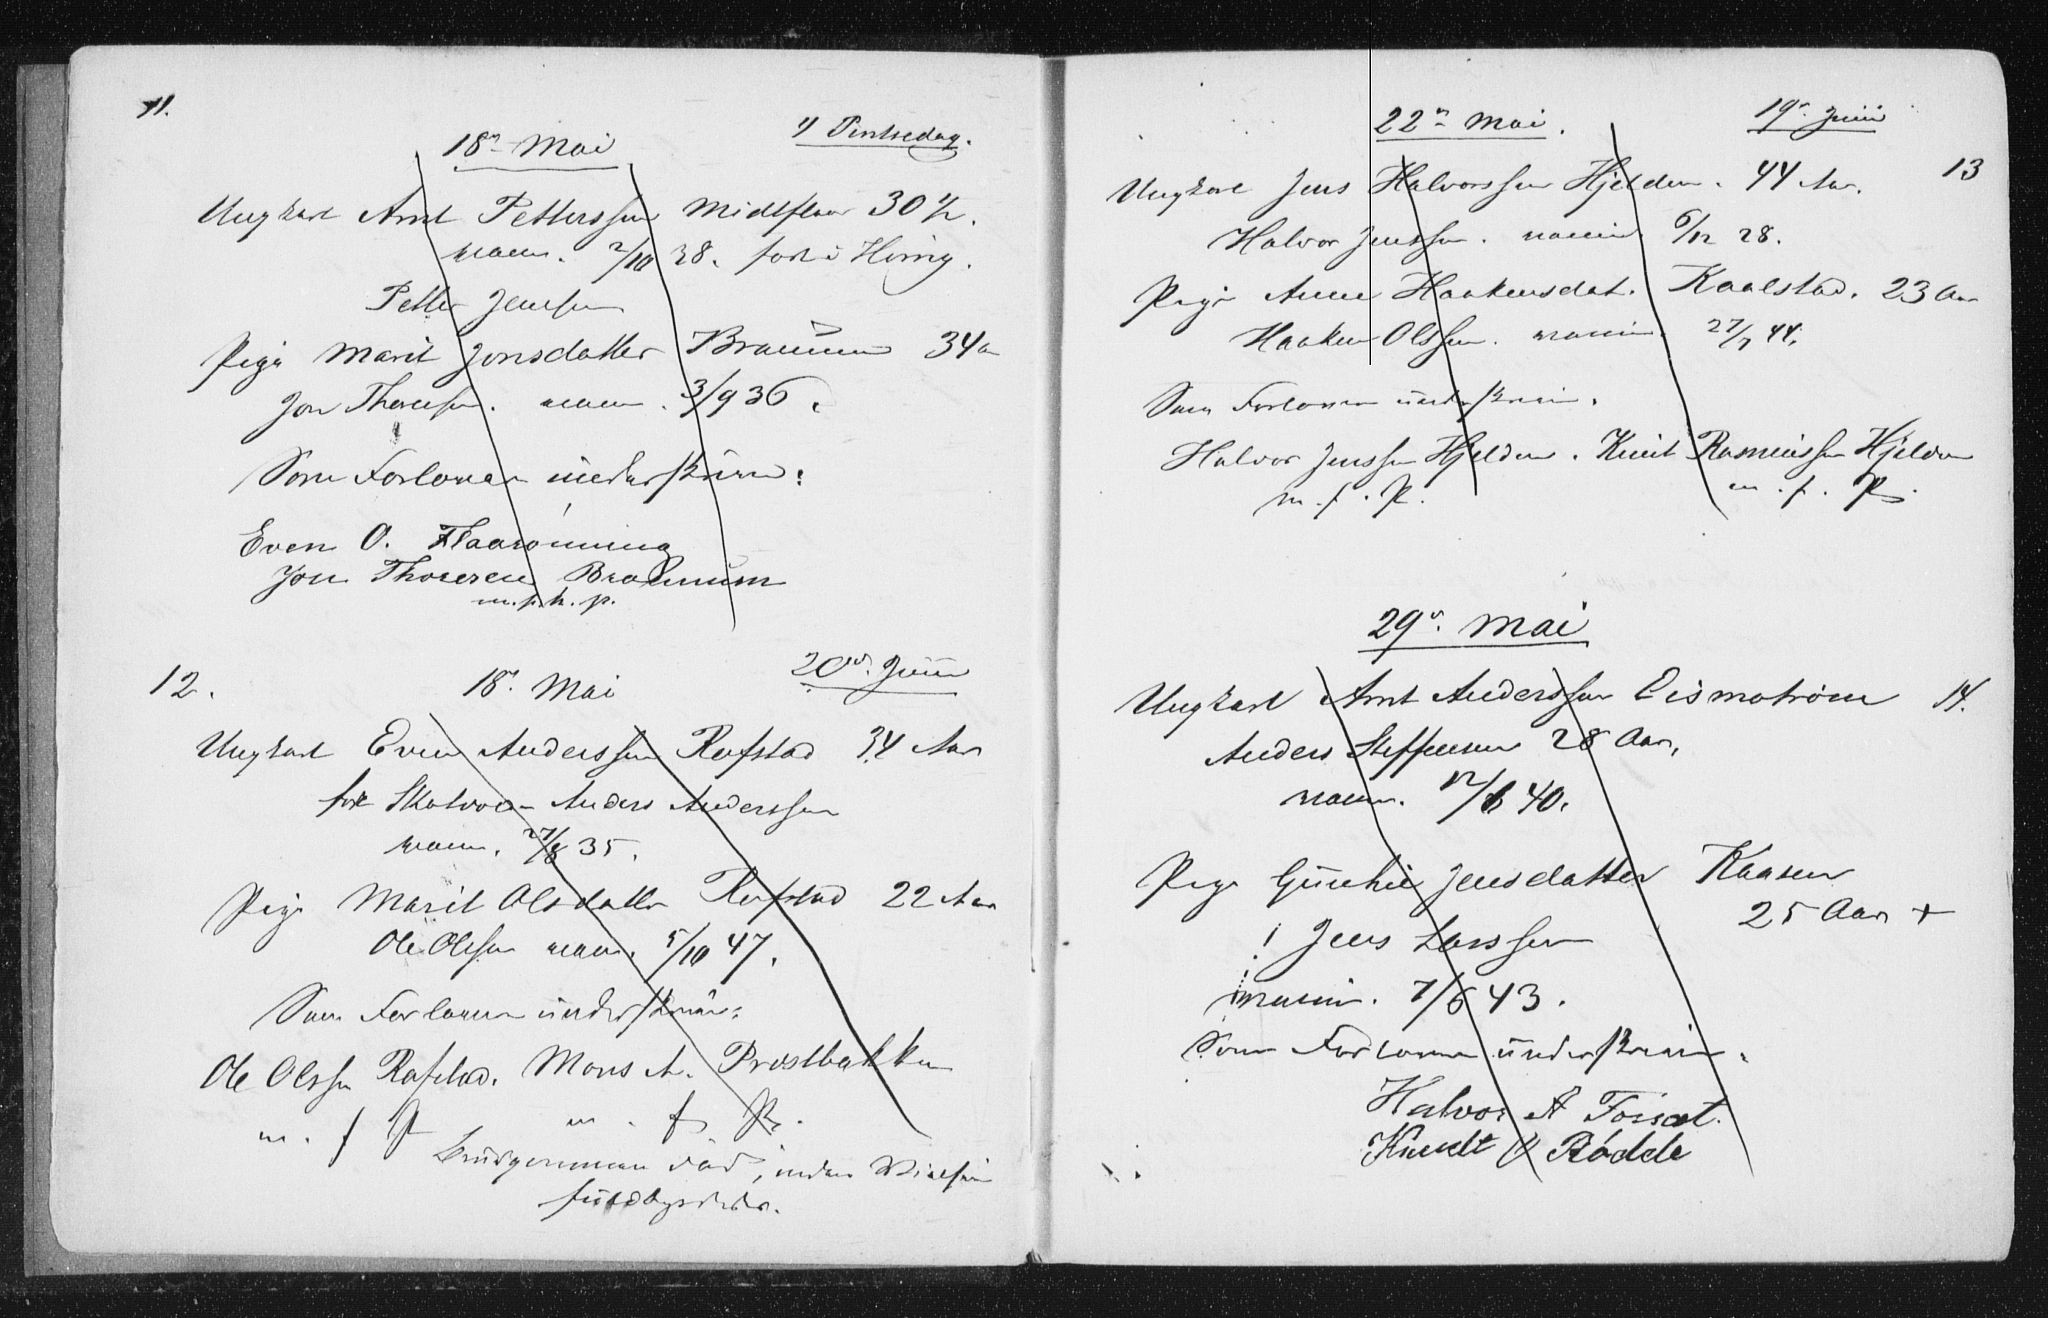 11.
18de Mai
2 Pintsedag.
Ungkarl Arnt Petterssen Midtflaa 30 1/2.
vacc. 2/10 38. fød i Horrig.
Petter Jenssen
Pige Marit Jonsdatter Braenum 34 a
Jon Thoresen. vacc. 3/9 36.
Som Forlovere underskrive:
Even O. Flaarønning
Jon Thoresen Braenum
m. p. h. p.
12.
18. Mai
20de Juni
Ungkarl Even Anderssen Rofstad 34 Aar
Anders Anderssen
vacc. 27/8 35.
Pige Marit Olsdatter Rofstad 22 Aar
Ole Olssen vacc. 5/10 47.
Som Forlovere underskrive:
Ole Olssen Rofstad. Mons A. Prestbakken
m. f. P. m. f. P.
13
22de Mai.
19de Juni
Ungkarl Jens Halvorssen Hjelden. 44 Aar.
Halvor Jenssen. vaccin. 6/12 28.
Pige Anne Haakensdat. Kaalstad. 23 Aar
Haaken Olssen. vaccin. 27/7 44.
Som Forlovere underskrive.
Halvor Jenssen Hjelden. Knut Rasmussen Hjelden
m. f. P. m. f. P.
29de Mai
14.
Ungkarl Arnt Anderssen Eismotrøen
Anders Steffensen 28 Aar.
vacc. 12/6 40.
Pige Gunhild Jensdatter Kaasen
25 Aar +
Jens Larssen
vaccin. 7/6 43.
Som Forlovere underskrive.
Halvor A Fossat.
Knudt Rødde